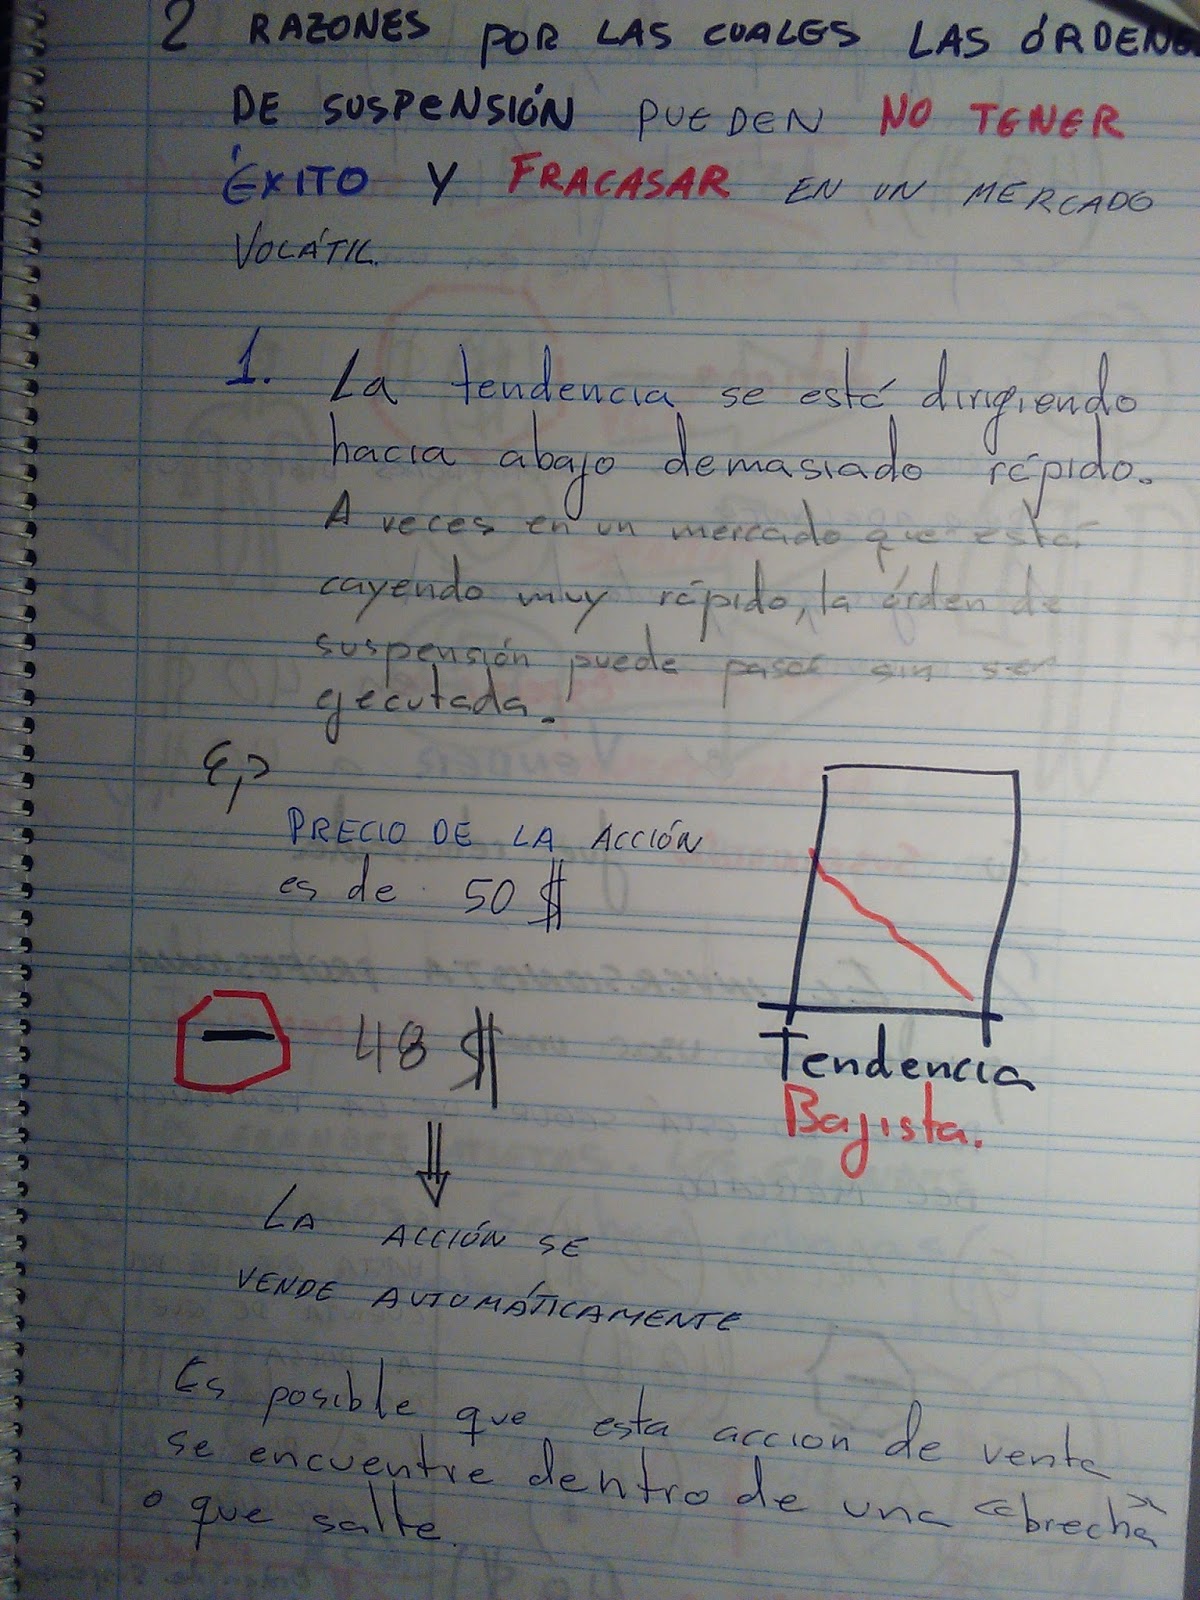 2 RAZONES POR LAS CUALES LAS ÓRDENES
DE SUSPENSIÓN PUEDEN NO TENER
ÉXITO Y FRACASAR EN UN MERCADO
VOLÁTIL.
1. La tendencia se está dirigiendo
hacia abajo demasiado rápido.
A veces en un mercado que está
cayendo muy rápido, la órden de
suspensión puede pasar sin ser
ejecutada.
Ej
PRECIO DE LA ACCIÓN
es de 50 $
— 48 $
Tendencia
Bajista.
LA ACCIÓN SE
VENDE AUTOMÁTICAMENTE
Es posible que esta acción de venta
se encuentre dentro de una "brecha"
o que salte.